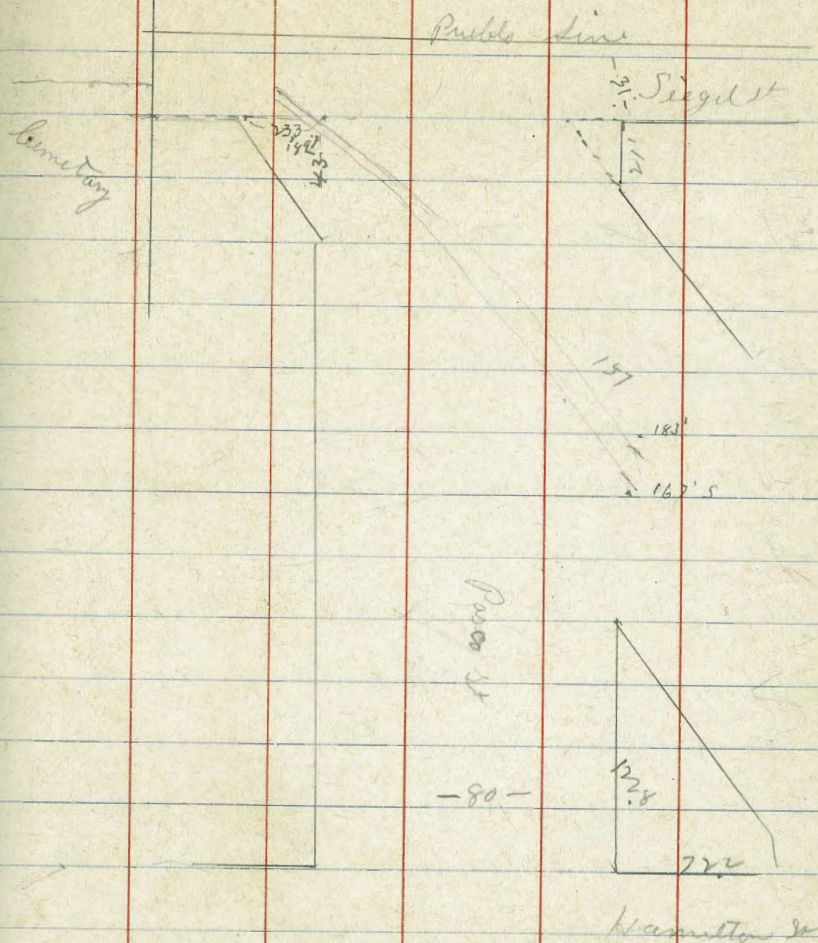 Pueblo Line
31
Siegel st
Cemetary
233
43
21'
157
183'
167' S
-80-
122.8
722
Hamilton St